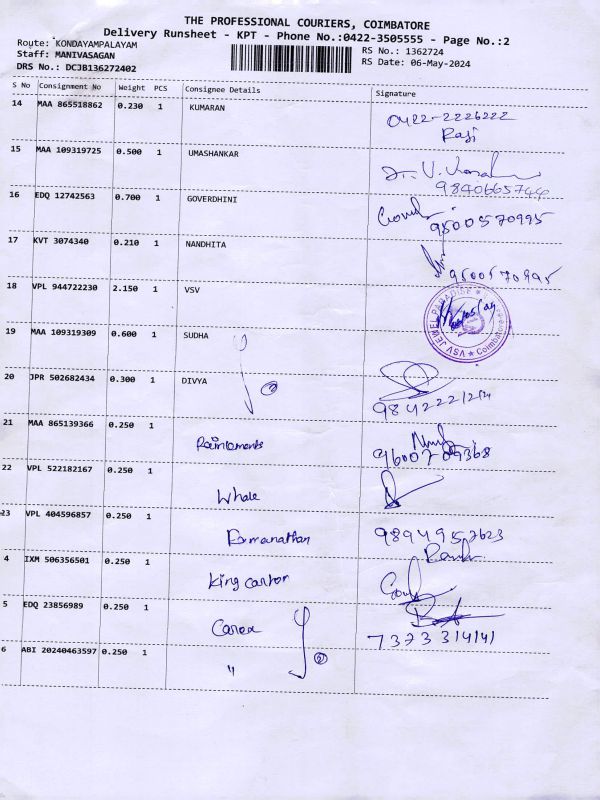 THE PROFESSIONAL COURIERS, COIMBATORE
Delivery Runsheet - KPT - Phone No.:0422-3505555 - Page No.:2
Route: KONDAYAMPALAYAM
Staff: MANIVASAGAN
DRS No.: DCJB136272402
RS No.: 1362724
RS Date: 06-May-2024
S No Consignment No Weight PCS Consignee Details Signature
14 MAA 865518862 0.230 1 KUMARAN 0422-2226222
Raji
15 MAA 109319725 0.500 1 UMASHANKAR
9840665744
16 EDQ 12742563 0.700 1 GOVERDHINI 9500570995
17 KVT 3074340 0.210 1 NANDHITA 9500570995
18 VPL 944722230 2.150 1 VSV
VSV JEWEL PARADISE Coimbatore
19 MAA 109319309 0.600 1 SUDHA
20 JPR 502682434 0.300 1 DIVYA 2
21 MAA 865139366 0.250 1 9600709368
22 VPL 522182167 0.250 1 Whale
23 VPL 404596857 0.250 1 Ramanathan 9894957623
4 IXM 506356501 0.250 1 King canton
5 EDQ 23856989 0.250 1
7373314141
6 ABI 20240463597 0.250 1 " 2